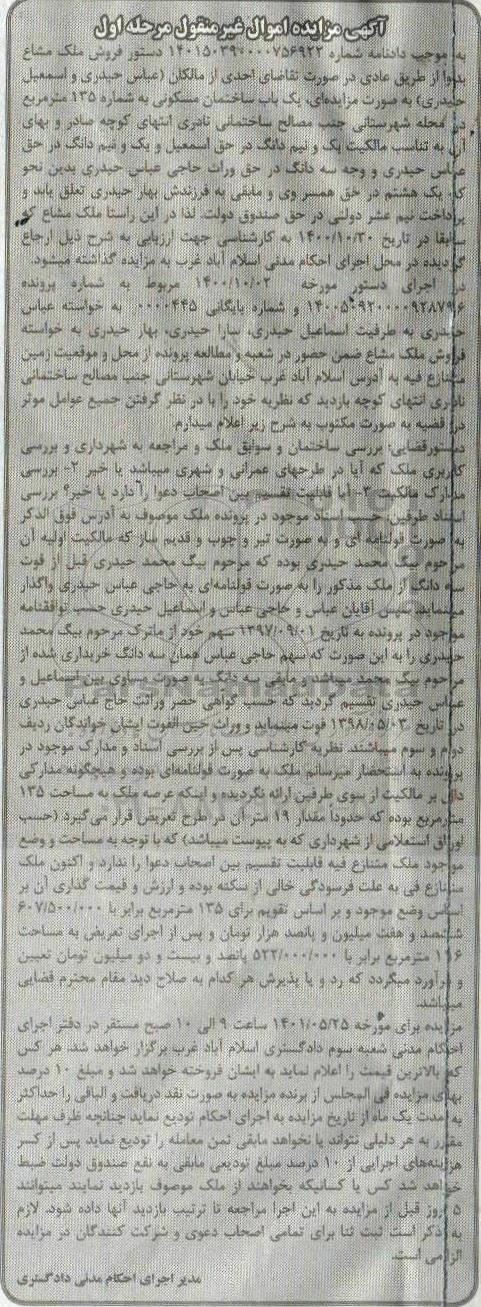 آگهی مزایده اموال غیرمنقول مرحله اول
به موجب دادنامه شماره ۱۴۰۱۵۰۳۹۰۰۰۰۷۵۶۹۲۲ دستور فروش ملک مشاع
بدوا از طریق عادی در صورت تقاضای احدی از مالکان (عباس حیدری و اسمعیل
حیدری) به صورت مزایده‌ای، یک باب ساختمان مسکونی به شماره ۱۳۵ مترمربع
در محله شهرستانی جنب مصالح ساختمانی نادری انتهای کوچه صادر و بهای
آن به تناسب مالکیت یک و نیم دانگ در حق اسمعیل و یک و نیم دانگ در حق
عباس حیدری و وجه سه دانگ در حق وراث حاجی عباس حیدری بدین نحو
که یک هشتم در حق همسر وی و مابقی به فرزندش بهار حیدری تعلق یابد و
پرداخت نیم عشر دولتی در حق صندوق دولت. لذا در این راستا ملک مشاع که
سابقا در تاریخ ۱۴۰۰/۱۰/۳۰ به کارشناسی جهت ارزیابی به شرح ذیل ارجاع
گردیده در محل اجرای احکام مدنی اسلام آباد غرب به مزایده گذاشته میشود.
در اجرای دستور مورخه ۱۴۰۰/۱۰/۰۲ مربوط به شماره پرونده
و شماره بایگانی ۰۰۰۰۴۴۵ به خواسته عباس
حیدری به طرفیت اسماعیل حیدری، سارا حیدری، بهار حیدری به خواسته
فروش ملک مشاع ضمن حضور در شعبه و مطالعه پرونده از محل و موقعیت زمین
متنازع فیه به آدرس اسلام آباد غرب خیابان شهرستانی جنب مصالح ساختمانی
نادری انتهای کوچه بازدید که نظریه خود را با در نظر گرفتن جمیع عوامل موثر
در قضیه به صورت مکتوب به شرح زیر اعلام میدارم.
دستورقضایی: بررسی ساختمان و سوابق ملک و مراجعه به شهرداری و بررسی
کاربری ملک که آیا در طرحهای عمرانی و شهری میباشد یا خیر ۲- بررسی
مدارک مالکیت ۳- آیا قابلیت تقسیم بین اصحاب دعوا را دارد یا خیر؟ بررسی
اسناد طرفین: حسب اسناد موجود در پرونده ملک موصوف به آدرس فوق الذکر
به صورت قولنامه ای و به صورت تیر و چوب و قدیم ساز که مالکیت اولیه آن
مرحوم بیگ محمد حیدری بوده که مرحوم بیگ محمد حیدری قبل از فوت
سه دانگ از ملک مذکور را به صورت قولنامه‌ای به حاجی عباس حیدری واگذار
مینماید. سپس آقایان عباس و حاجی عباس و اسماعیل حیدری حسب توافقنامه
موجود در پرونده به تاریخ ۱۳۹۷/۰۹/۰۱ سهم خود از ماترک مرحوم بیگ محمد
حیدری را به این صورت که سهم حاجی عباس همان سه دانگ خریداری شده از
مرحوم بیگ محمد میباشد و مابقی سه دانگ به صورت مساوی بین اسماعیل و
عباس حیدری تقسیم گردید که حسب گواهی حصر وراثت حاج عباس حیدری
در تاریخ ۱۳۹۸/۰۵/۰۳ فوت مینماید و وراث حین الفوت ایشان خواندگان ردیف
دوم و سوم میباشند. نظریه کارشناسی پس از بررسی اسناد و مدارک موجود در
پرونده به استحضار میرسانم ملک به صورت قولنامه‌ای بوده و هیچگونه مدارکی
دال بر مالکیت از سوی طرفین ارائه نگردیده و اینکه عرصه ملک به مساحت ۱۳۵
مترمربع بوده که حدوداً مقدار ۱۹ متر آن در طرح تعریض قرار می‌گیرد (حسب
اوراق استعلامی از شهرداری که به پیوست میباشد) که با توجه به مساحت و وضع
موجود ملک متنازع فیه قابلیت تقسیم بین اصحاب دعوا را ندارد و اکنون ملک
متنازع فی به علت فرسودگی خالی از سکنه بوده و ارزش و قیمت گذاری آن بر
اساس وضع موجود و بر اساس تقویم برای ۱۳۵ مترمربع برابر با ۶۰۷/۵۰۰/۰۰۰
ششصد و هفت میلیون و پانصد هزار تومان و پس از اجرای تعریض به مساحت
۱۱۶ مترمربع برابر با ۵۲۲/۰۰۰/۰۰۰ پانصد و بیست و دو میلیون تومان تعیین
و برآورد میگردد که رد و یا پذیرش هر کدام به صلاح دید مقام محترم قضایی
میباشد.
مزایده برای مورخه ۱۴۰۱/۰۵/۲۵ ساعت ۹ الی ۱۰ صبح مستقر در دفتر اجرای
احکام مدنی شعبه سوم دادگستری اسلام آباد غرب برگزار خواهد شد. هر کس
که بالاترین قیمت را اعلام نماید به ایشان فروخته خواهد شد و مبلغ ۱۰ درصد
بهای مزایده فی المجلس از برنده مزایده به صورت نقد دریافت و الباقی را حداکثر
به مدت یک ماه از تاریخ مزایده به اجرای احکام تودیع نماید چنانچه ظرف مهلت
مقرر به هر دلیلی نتواند یا نخواهد مابقی ثمن معامله را تودیع نماید پس از کسر
هزینه‌های اجرایی از ۱۰ درصد مبلغ تودیعی مابقی به نفع صندوق دولت ضبط
خواهد شد کس یا کسانیکه بخواهند از ملک موصوف بازدید نمایند میتوانند
۵ روز قبل از مزایده به این اجرا مراجعه تا ترتیب بازدید آنها داده شود. لازم
به ذکر است ثبت ثنا برای تمامی اصحاب دعوی و شرکت کنندگان در مزایده
الزامی است.
مدیر اجرای احکام مدنی دادگستری